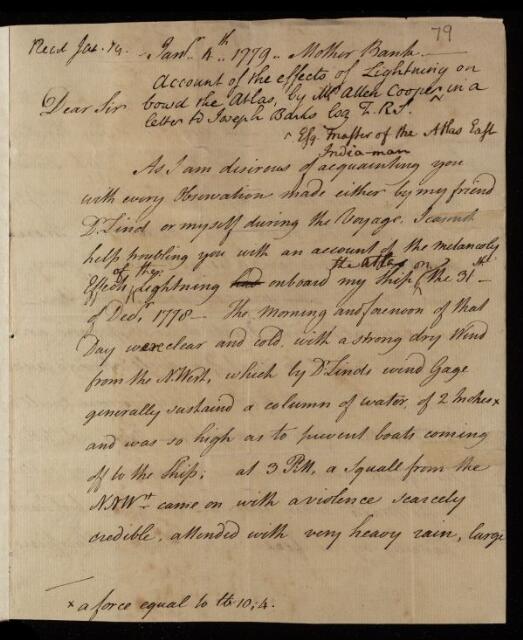 79
Read Jan. 14.
Janry. 4th 1779.. Mother Bank.
Account of the effects of Lightning on
Dear Sir
board the Atlas, by Mr Allen Cooper, in a
letter to Joseph Banks Esq F.R.S.
^ Esq. Master of the Atlas East
India-man
As I am disirous of acquainting you
with every Observation made either by my friend
Dr. Lind or myself during the Voyage, I cannot
help troubling you with an account of the melancoly
of the the Atlas on
Effects Lightning had onboard my Ship the 31st
of Decr. 1778 — The morning and forenoon of that
Day were clear and cold with a strong dry Wind
from the N.West, which by Dr. Linds wind Gage
generally sustaind a column of water of 2 Inches x
and was so high as to prevent boats coming
off to the Ship; at 3 PM, a Squall from the
N.N.Wt. came on with a violence scarcely
credible, attended with very heavy rain, large
x a force equal to lb 10; 4.